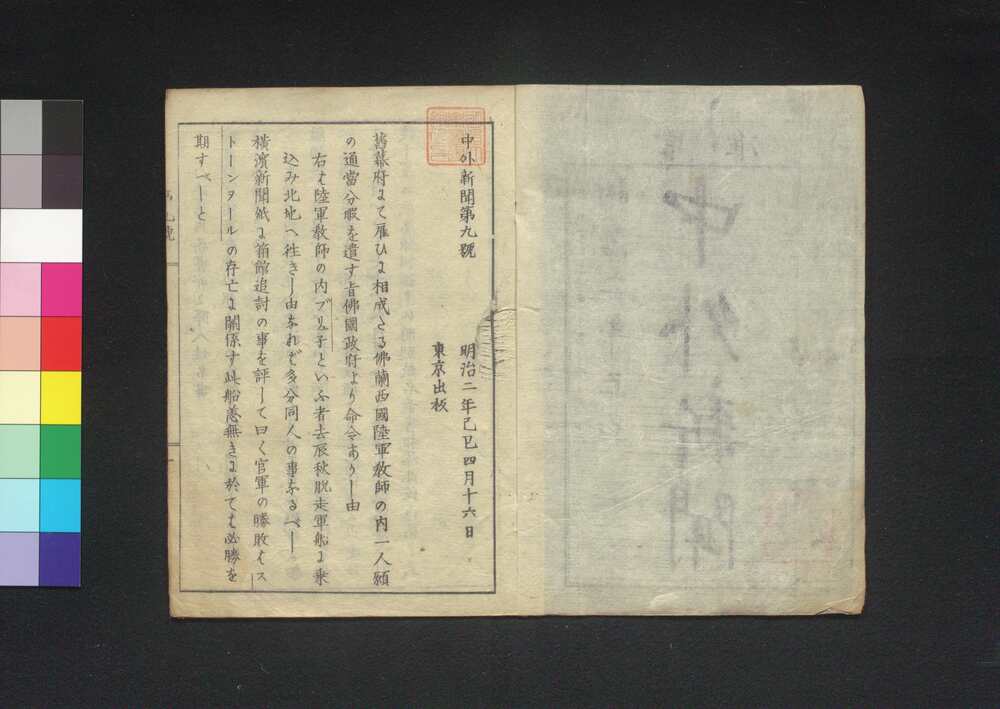 中外新聞第九號
明治二年己巳四月十六日
東京出板
舊幕府よて雇ひよ相成たる佛蘭西國陸軍教師の内一人願
の通當分暇を遣す旨佛國政府より命令ありし由
右は陸軍教師の内ブリ子といふ者去辰秋脱走軍船よ乗
込み北地へ往きし由なれバ多分同人の事なるべし
横濱新聞紙よ箱館追討の事を評して曰く官軍の勝敗はス
トーンヲールの存亡よ關係す此船恙無きよ於ては必勝を
期すべしと
中外新聞